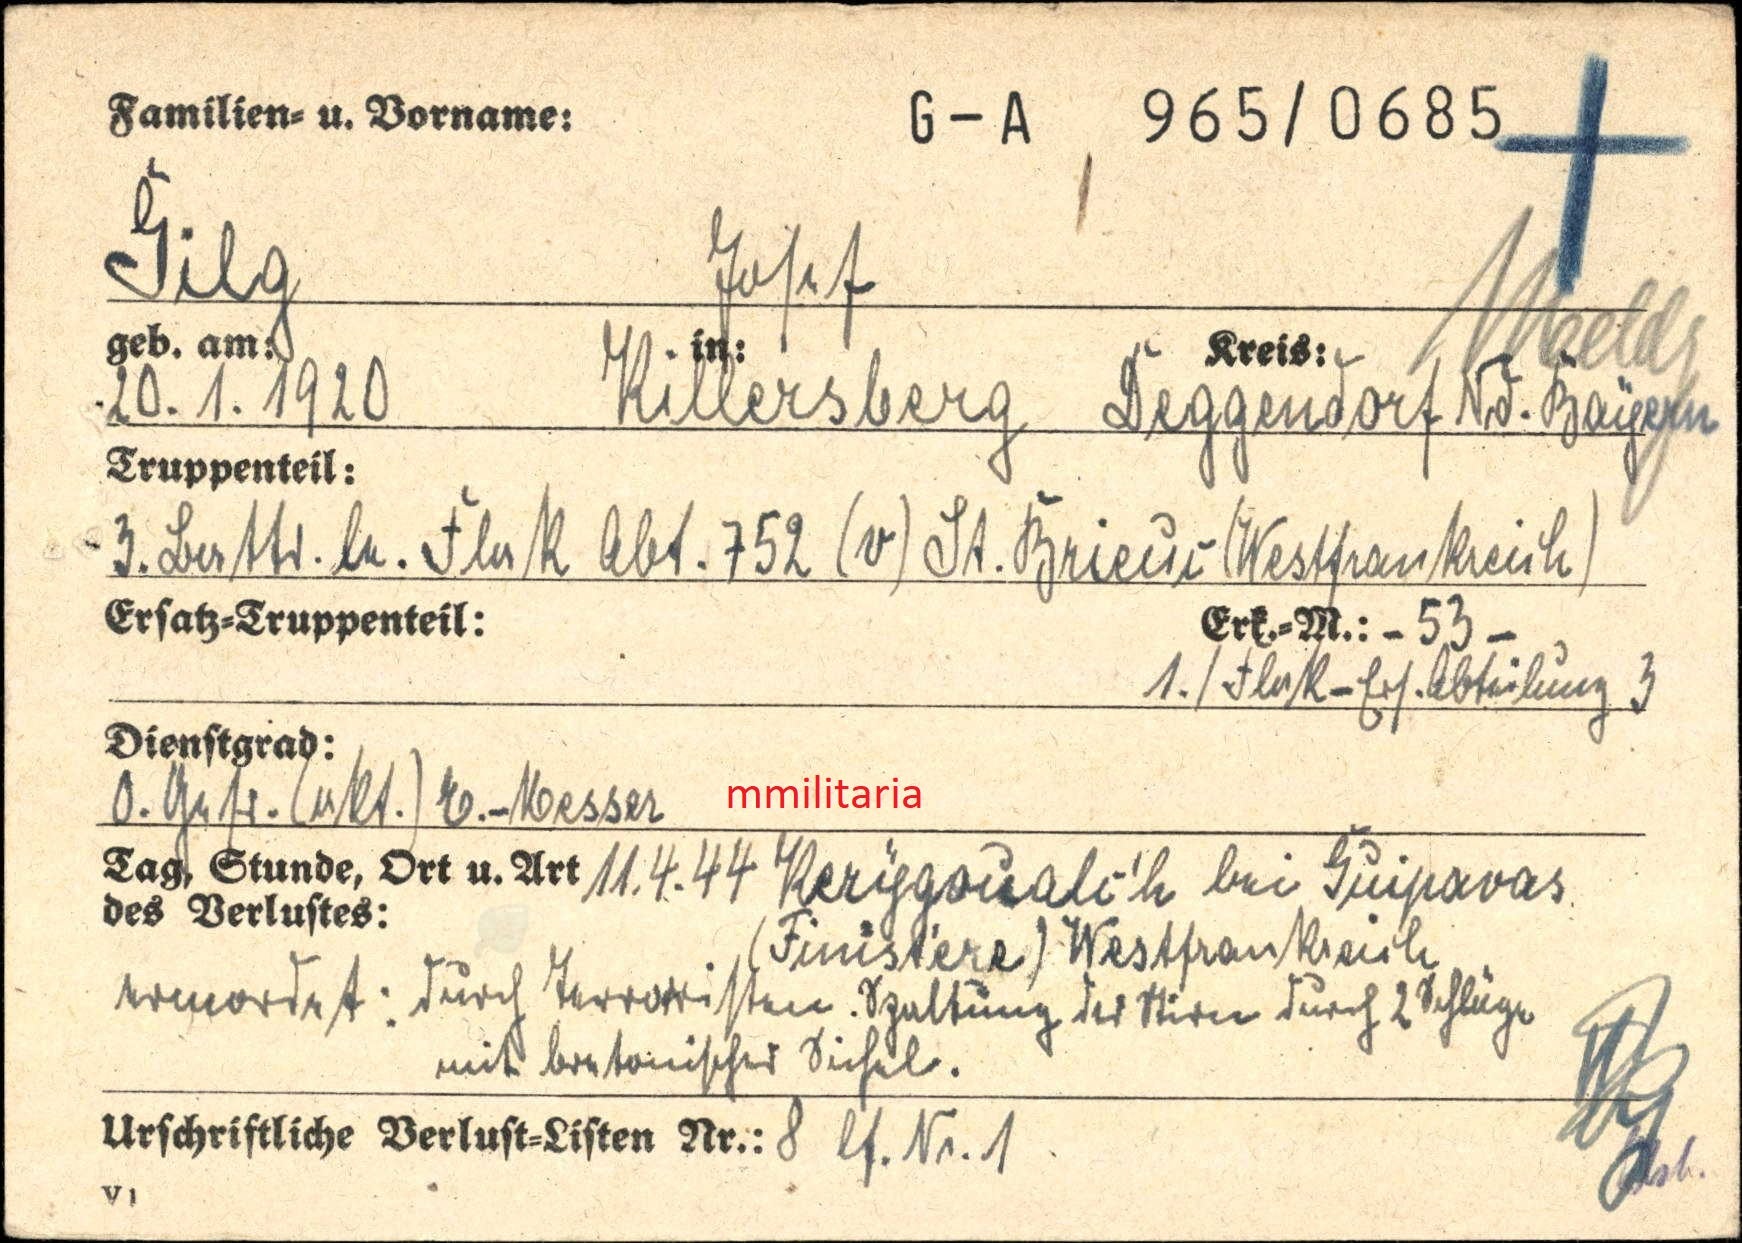 Familien- u. Vorname: G-A 965/0685
Gilg Josef
geb. am: in: Kreis:
20. 1. 1920 Killersberg Deggendorf Nd. Bayern
Truppenteil:
3. Battr. le. Flak Abt. 752 (v) St. Brieuc (Westfrankreich)
Ersatz-Truppenteil: Erk.-M.: - 53 -
1./Flak-Ers. Abteilung 3
Dienstgrad:
O. Gefr. (akt.) E.-Messer
mmilitaria
Tag, Stunde, Ort u. Art 11.4.44 Kerygoualc'h bei Guipavas
des Verlustes: (Finistère) Westfrankreich
ermordet: durch Terroristen. Spaltung der Stirn durch 2 Schläge
mit bretonischer Sichel.
Urschriftliche Verlust-Listen Nr.: 8 lf. Nr. 1
V 1